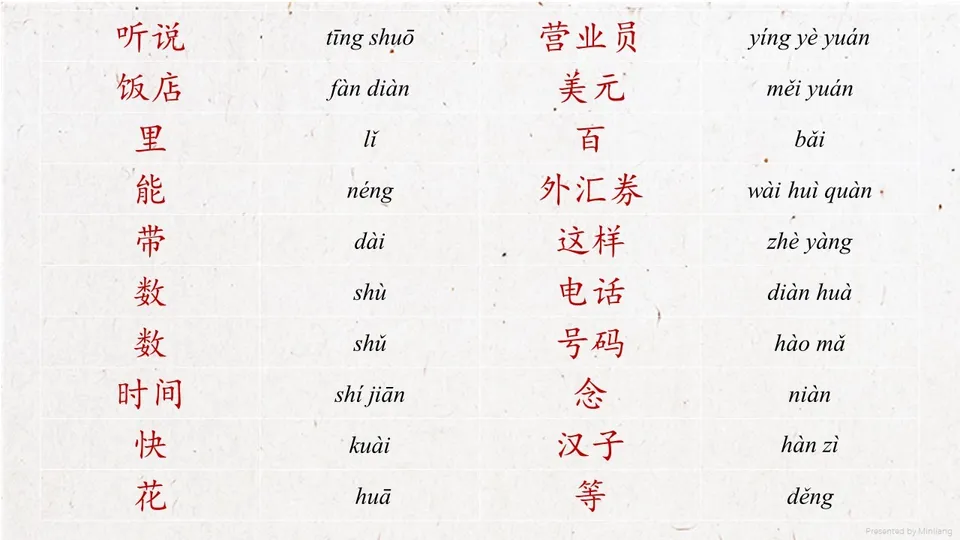 听说 tīng shuō 营业员 yíng yè yuán
饭店 fàn diàn 美元 měi yuán
里 lǐ 百 bǎi
能 néng 外汇券 wài huì quàn
带 dài 这样 zhè yàng
数 shù 电话 diàn huà
数 shǔ 号码 hào mǎ
时间 shí jiān 念 niàn
快 kuài 汉子 hàn zì
花 huā 等 děng
Presented by Minjieng